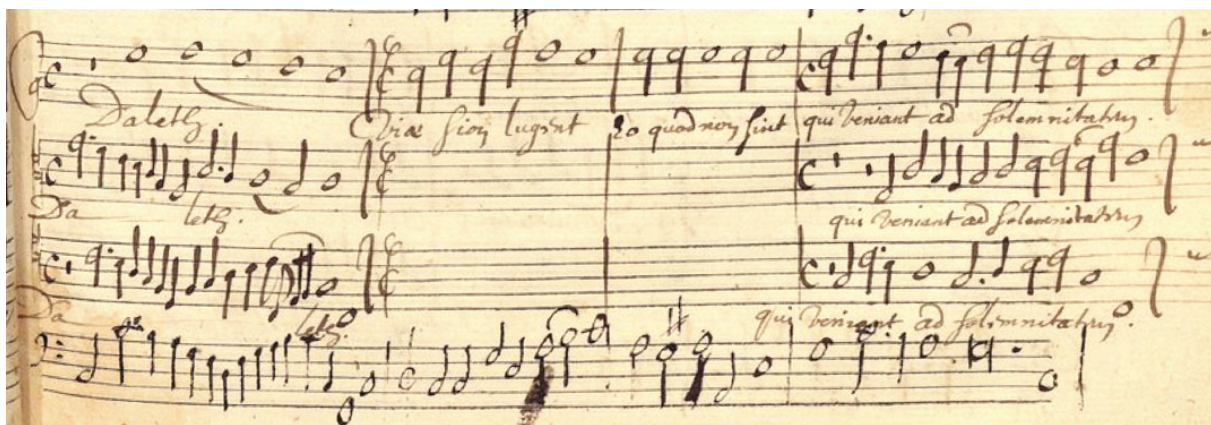 Daleth. Viæ sion lugent Eo quod non sint qui veniant ad solemnitatem.
Da leth. qui veniant ad solemnitatem
Da leth. qui veniant ad solemnitatem.